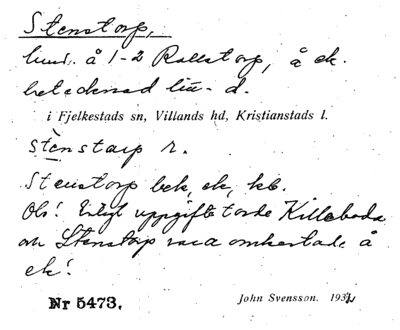 Stenstorp,
hmd. å 1-2 Rallstorp, å ek.
betecknad
i Fjelkestads sn, Villands hd, Kristianstads l.
stenstarp r.
Stenstorp bek, ek, kb.
Obs! Enligt uppgift torde Killeboda
och Stenstorp vara omkastade å
ek!
Nr 5473.
John Svensson. 1931